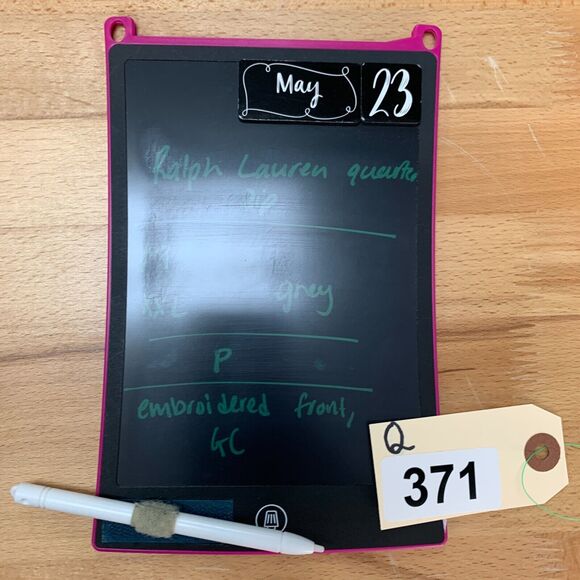 May 23
Ralph Lauren quarter
zip
M
XXL grey
P
embroidered front,
GC
Q
371